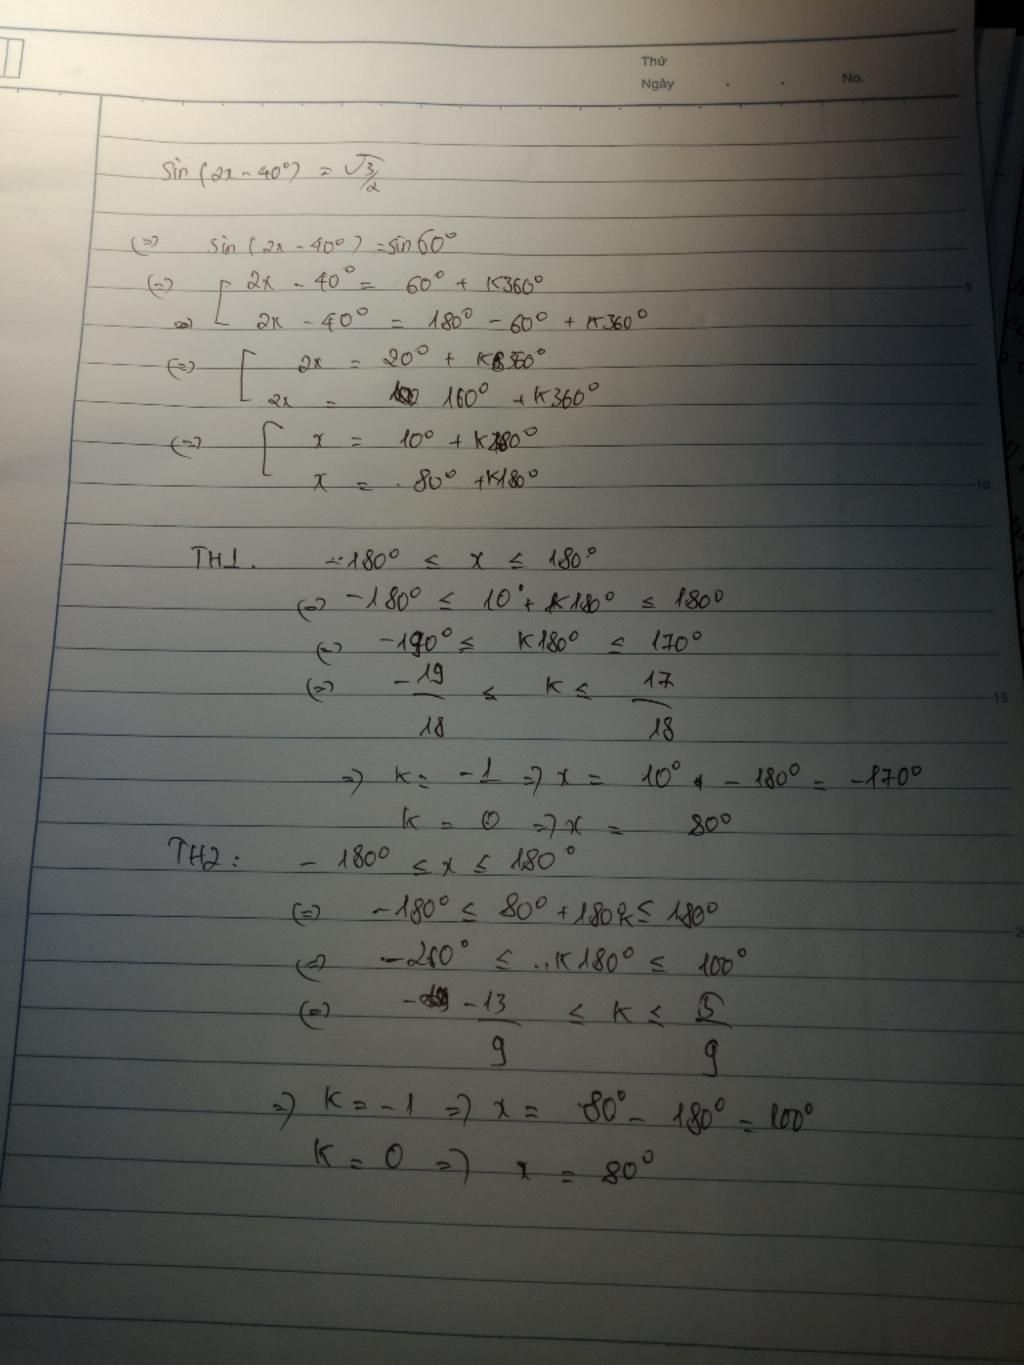 Thứ
Ngày . . No.
sin (2x - 40°) = √3/2
(=) sin (2x - 40°) = sin 60°
(=) [ 2x - 40° = 60° + K360°
2x - 40° = 180° - 60° + K360°
(=) [ 2x = 20° + K360°
2x = 160° + K360°
(=) [ x = 10° + K180°
x = 80° + K180°
TH1. -180° ≤ x ≤ 180°
(=) -180° ≤ 10° + K180° ≤ 180°
(=) -190° ≤ K180° ≤ 170°
(=) -19/18 ≤ K ≤ 17/18
=) K = -1 =) x = 10° - 180° = -170°
K = 0 =) x = 80°
TH2: -180° ≤ x ≤ 180°
(=) -180° ≤ 80° + 180k ≤ 180°
(=) -260° ≤ K180° ≤ 100°
(=) -13/9 ≤ K ≤ 5/9
=) K = -1 =) x = 80° - 180° = 100°
K = 0 =) x = 80°
5
10
15
2